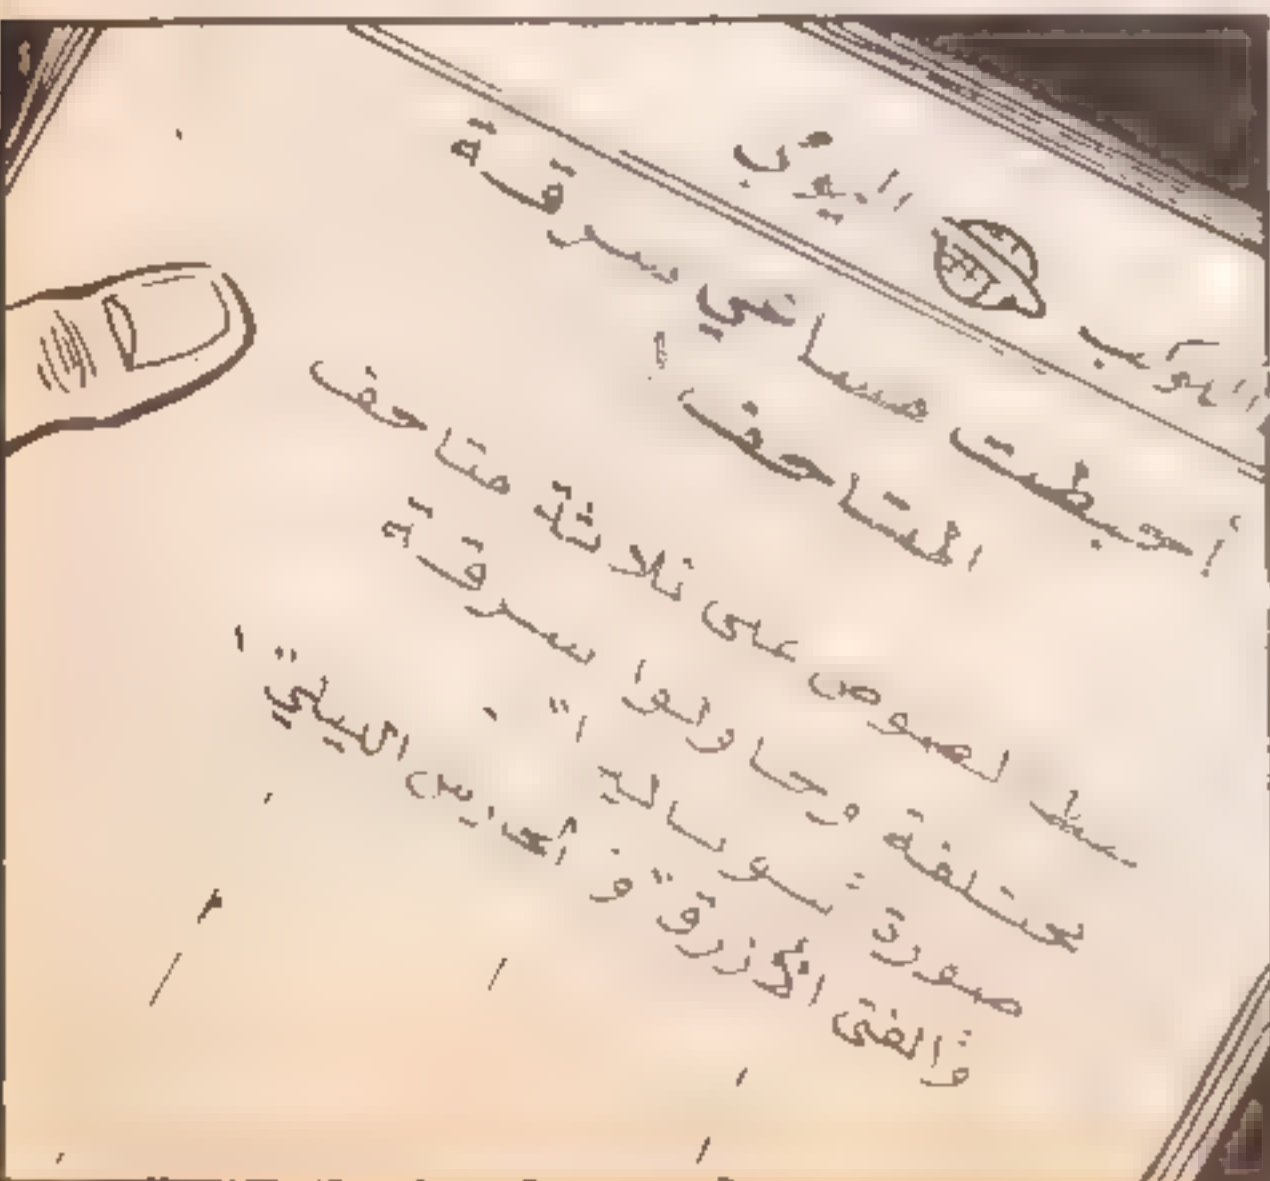 الكوكب اليومي
أحبطت مساعي سرقة
المتاحف!
سطا لصوص على ثلاثة متاحف
مختلفة وحاولوا سرقة
صورة
و"الفتى الأزرق" و"الحارس الليلي"